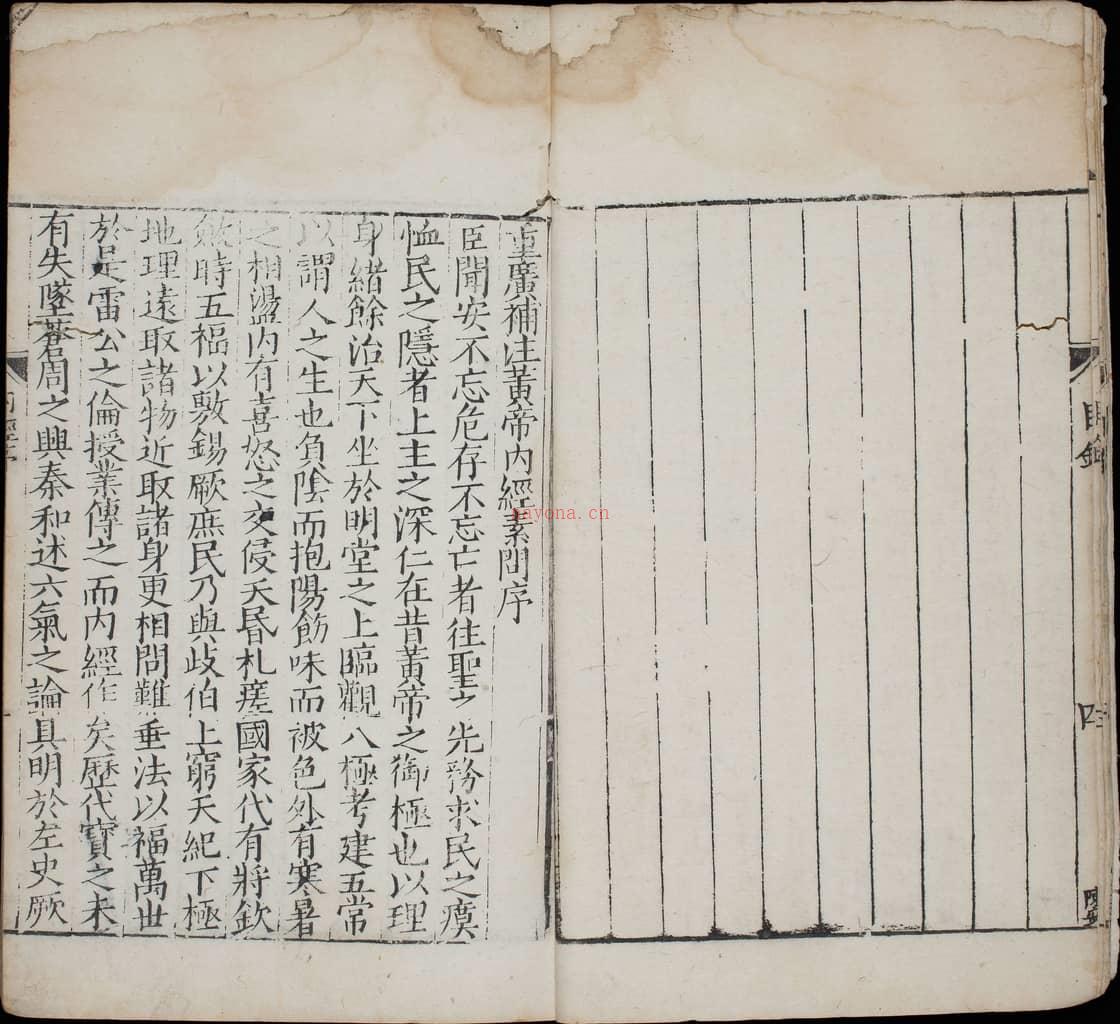 目錄
四
重廣補注黃帝內經素問序
臣聞安不忘危存不忘亡者往聖之先務求民之瘼
恤民之隱者上主之深仁在昔黃帝之御極也以理
身緒餘治天下坐於明堂之上臨觀八極考建五常
以謂人之生也負陰而抱陽飭味而被色外有寒暑
之相盪內有喜怒之交侵夭昬札瘥國家代有將欲
斂時五福以敷錫厥庶民乃與歧伯上窮天紀下極
地理遠取諸物近取諸身更相問難垂法以福萬世
於是雷公之倫授業傳之而內經作矣歷代寶之未
有失墜蒼周之興秦和述六氣之論具明於左史厥
nayona.cn